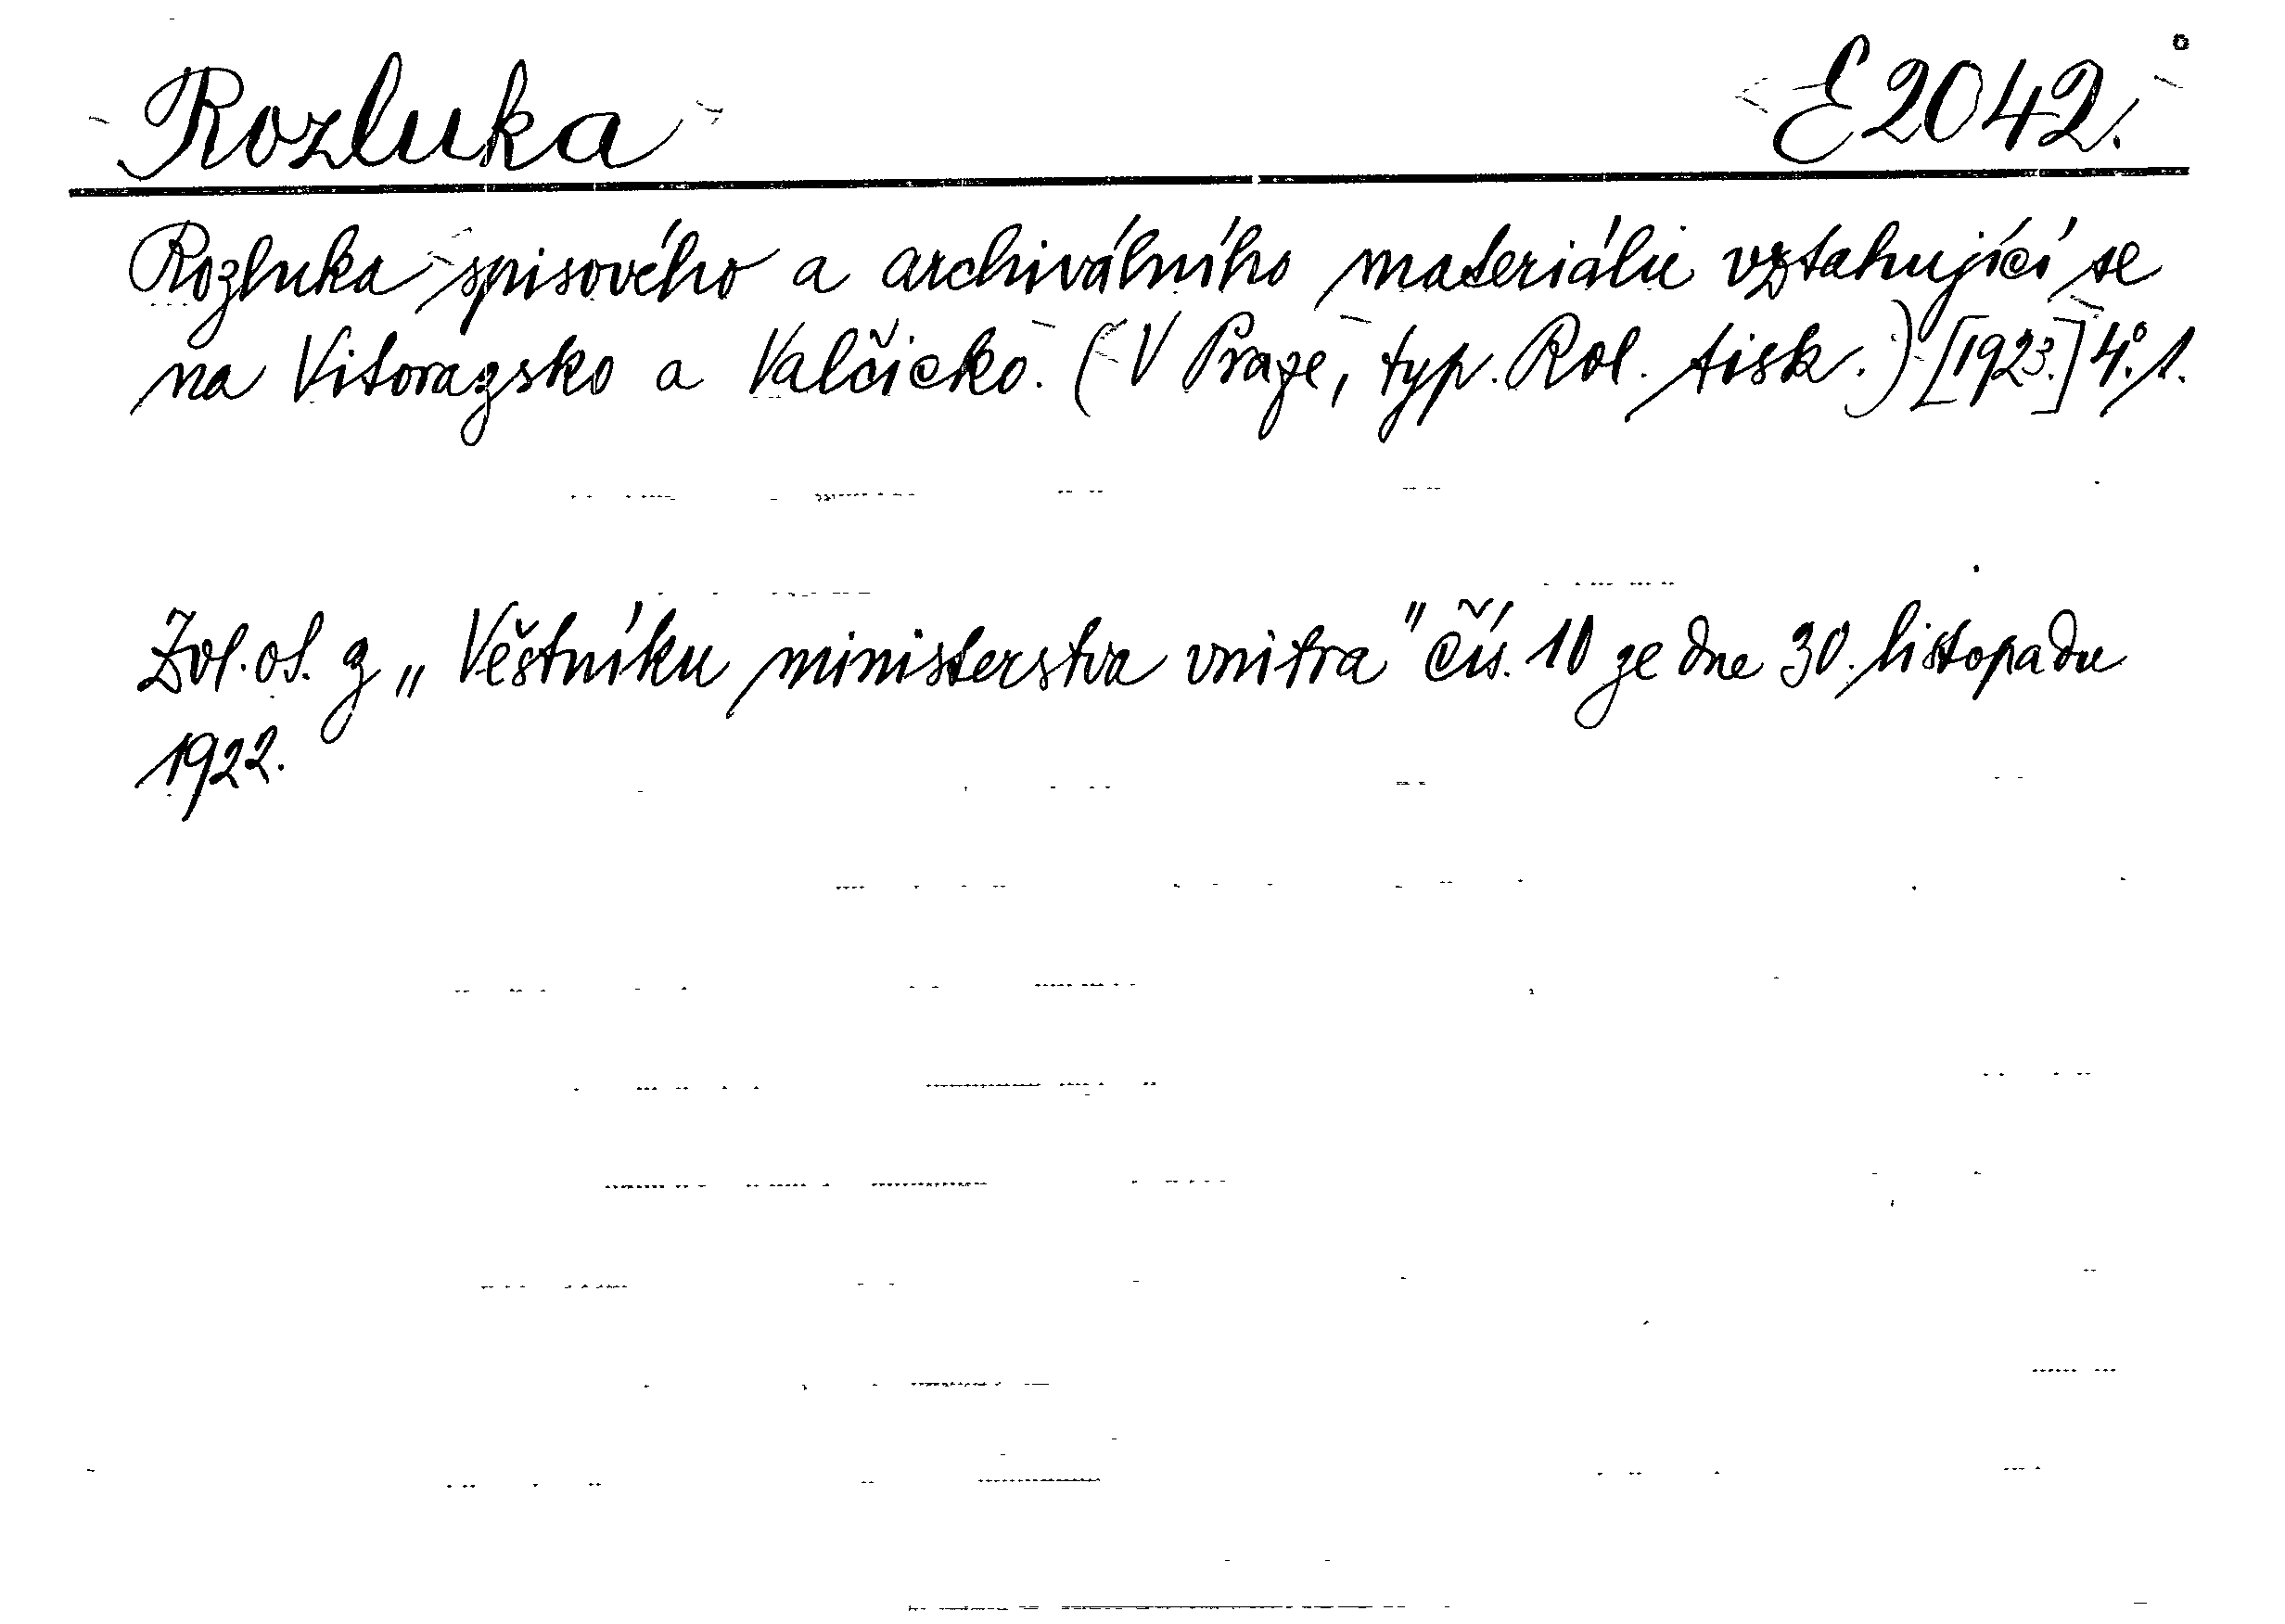 Rozluka E 2042.
Rozluka spisového a archiválního materiálu vztahující se
na Vitorazsko a Valčicko. (V Praze, typ. Rol. tisk.) [1923.] 4°. 1.
Zvl. ot. z „Věstníku ministerstva vnitra" čís. 10 ze dne 30. listopadu
1922.